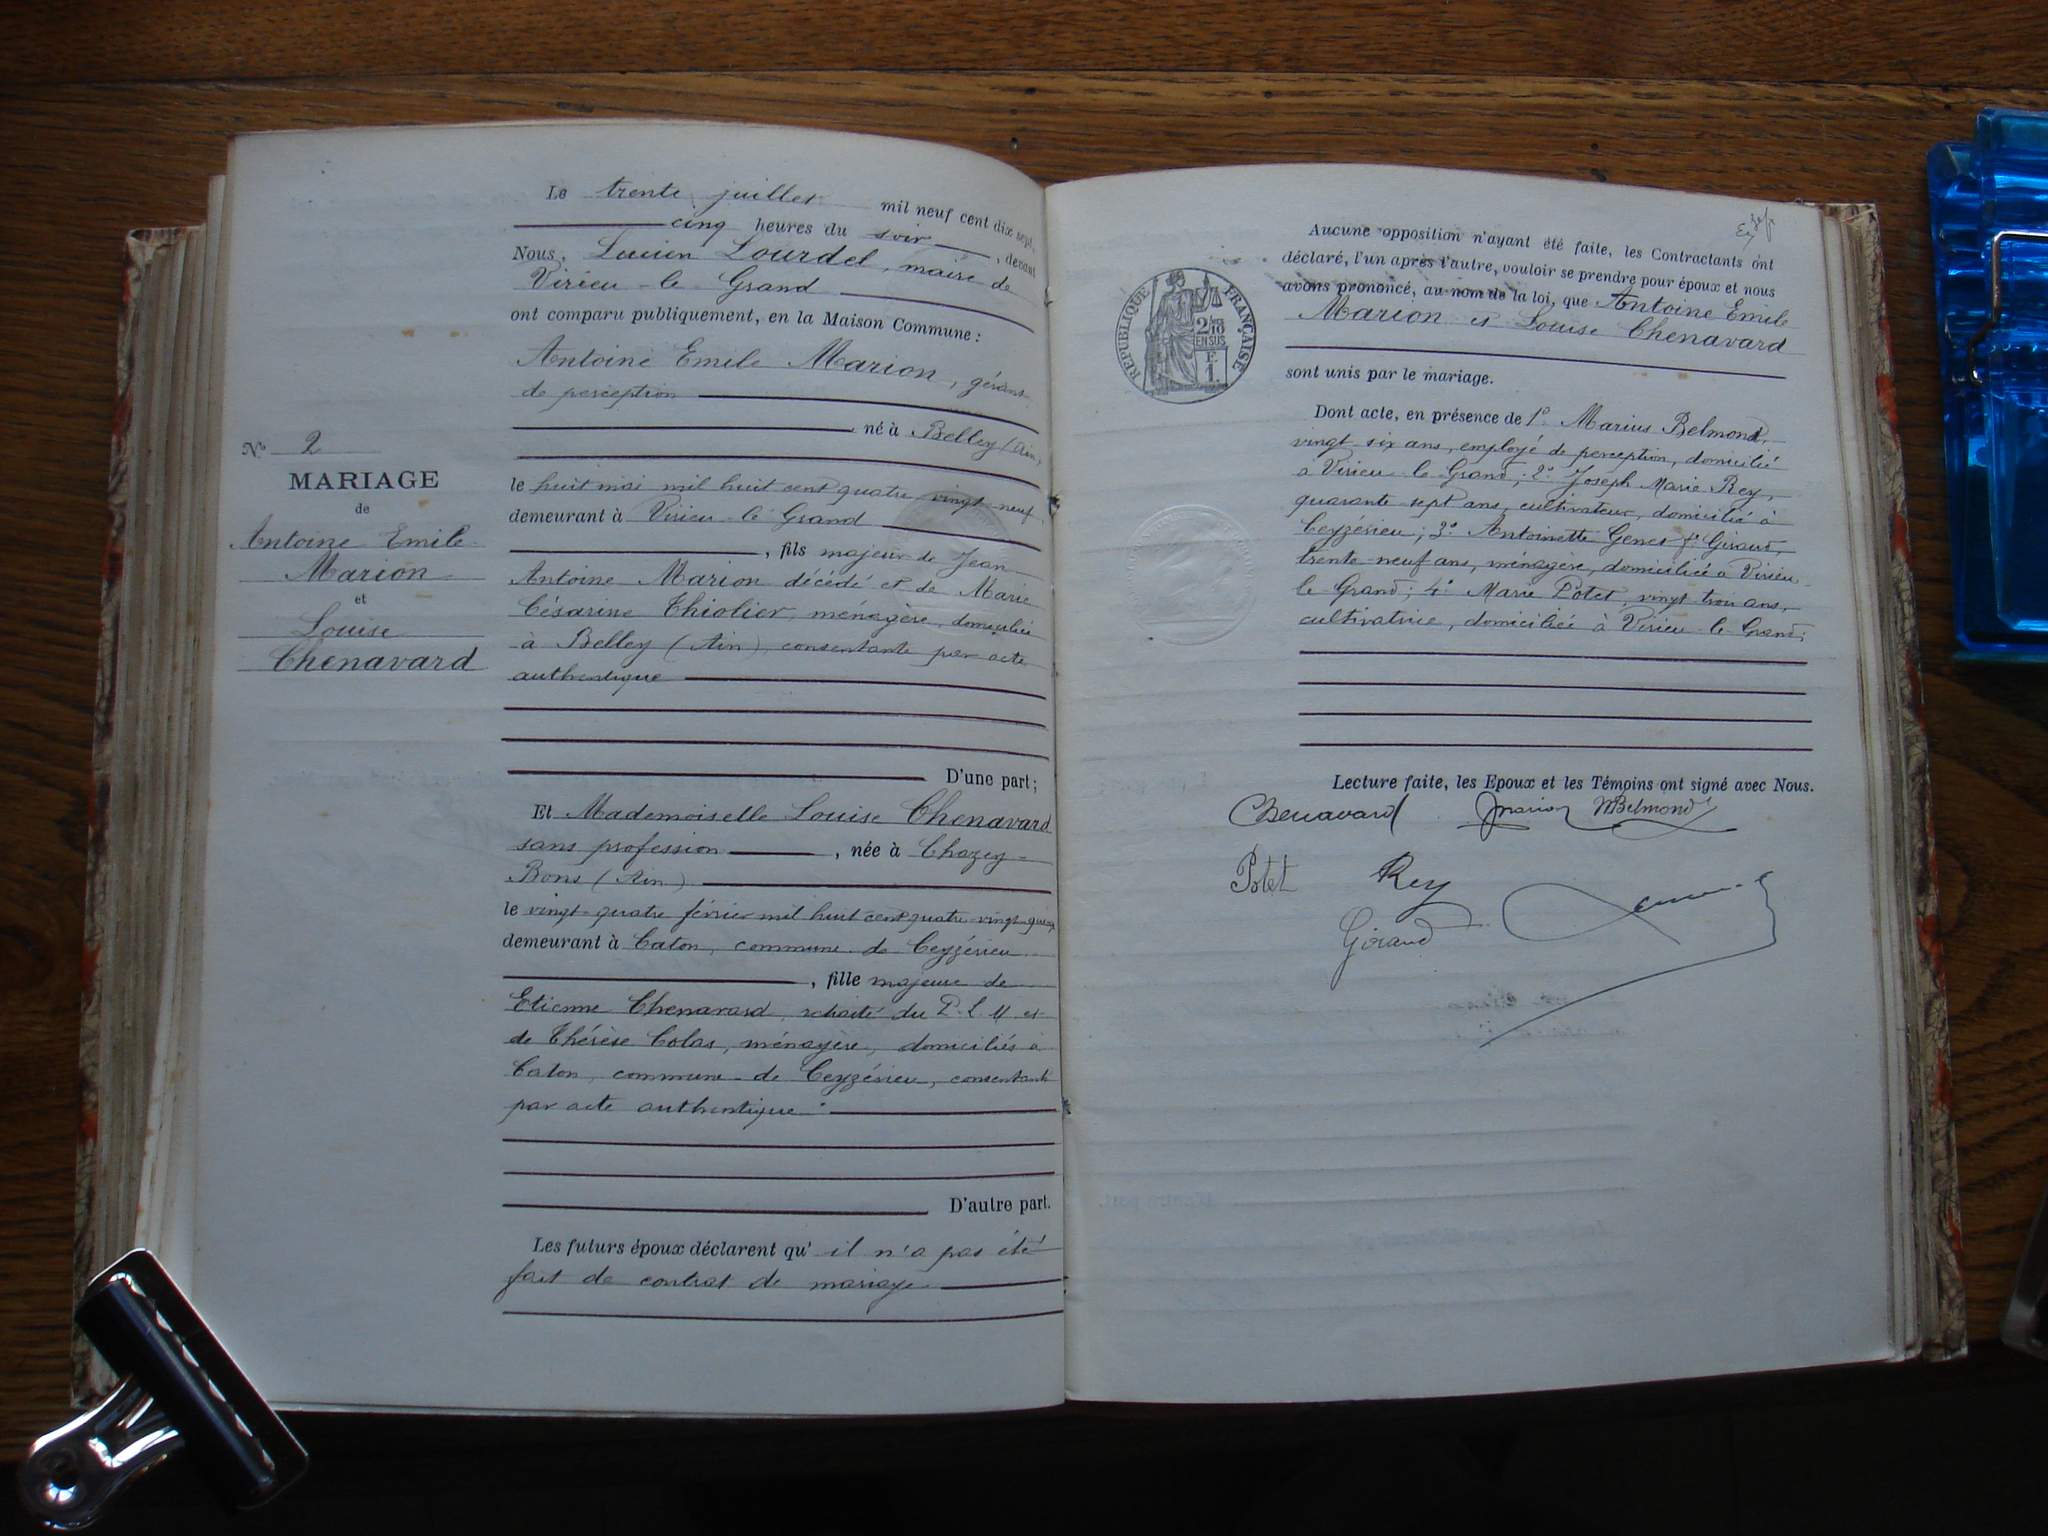 Le trente juillet mil neuf cent dix sept
cinq heures du soir, devant
Nous, Lucien Lourdel, maire de
Virieu-le Grand
ont comparu publiquement, en la Maison Commune :
Antoine Emile Marion, gérant
de perception
né à Belley (Ain)
le huit mai mil huit cent quatre vingt neuf
demeurant à Virieu-le Grand
, fils majeur de Jean
Antoine Marion décédé et de Marie
Césarine Thiolier, ménagère, domiciliée
à Belley (Ain), consentante par acte
authentique
D'une part ;
No 2
MARIAGE
de
Antoine Emile
Marion
et
Louise
Chenavard
Et Mademoiselle Louise Chenavard
sans profession, née à Chazey-
Bons (Ain)
le vingt-quatre février mil huit cent quatre-vingt-quinze
demeurant à Caton, commune de Ceyzérieu
, fille majeure de
Etienne Chenavard, retraité du P.L.M et
de Thérèse Colas, ménagère, domiciliés à
Caton, commune de Ceyzérieu, consentants
par acte authentique
D'autre part.
Les futurs époux déclarent qu'il n'a pas été
fait de contrat de mariage
Aucune opposition n'ayant été faite, les Contractants ont
déclaré, l'un après l'autre, vouloir se prendre pour époux et nous
avons prononcé, au nom de la loi, que Antoine Emile
Marion et Louise Chenavard
sont unis par le mariage.
RÉPUBLIQUE FRANÇAISE
2/10
EN SUS
F.
1.
Dont acte, en présence de 1° Marius Belmond,
vingt six ans, employé de perception, domicilié
à Virieu-le Grand; 2° Joseph Marie Rey,
quarante sept ans, cultivateur, domicilié à
Ceyzérieu; 3° Antoinette Genet fe Giraud,
trente-neuf ans, ménagère, domiciliée à Virieu-
le Grand; 4° Marie Potet, vingt trois ans,
cultivatrice, domiciliée à Virieu-le-Grand;
Lecture faite, les Epoux et les Témoins ont signé avec Nous.
Chenavard Marion MBelmond
Potet Rey
Giraud